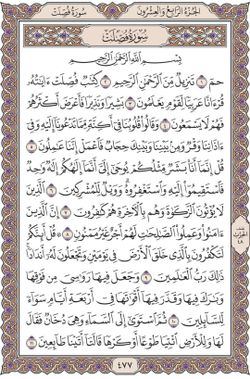 الجزء الرابع والعشرون
سورة فصلت
سورة فصلت
بسم الله الرحمن الرحيم
حمٓ ١ تَنزِيلٌ مِّنَ ٱلرَّحْمَٰنِ ٱلرَّحِيمِ ٢ كِتَٰبٌ فُصِّلَتْ ءَايَٰتُهُۥ
قُرْءَانًا عَرَبِيًّا لِّقَوْمٍ يَعْلَمُونَ ٣ بَشِيرًا وَنَذِيرًا فَأَعْرَضَ أَكْثَرُهُمْ
فَهُمْ لَا يَسْمَعُونَ ٤ وَقَالُوا۟ قُلُوبُنَا فِىٓ أَكِنَّةٍ مِّمَّا تَدْعُونَآ إِلَيْهِ وَفِىٓ
ءَاذَانِنَا وَقْرٌ وَمِنۢ بَيْنِنَا وَبَيْنِكَ حِجَابٌ فَٱعْمَلْ إِنَّنَا عَٰمِلُونَ ٥
قُلْ إِنَّمَآ أَنَا۠ بَشَرٌ مِّثْلُكُمْ يُوحَىٰٓ إِلَىَّ أَنَّمَآ إِلَٰهُكُمْ إِلَٰهٌ وَٰحِدٌ
فَٱسْتَقِيمُوٓا۟ إِلَيْهِ وَٱسْتَغْفِرُوهُ وَوَيْلٌ لِّلْمُشْرِكِينَ ٦ ٱلَّذِينَ
لَا يُؤْتُونَ ٱلزَّكَوٰةَ وَهُم بِٱلْءَاخِرَةِ هُمْ كَٰفِرُونَ ٧ إِنَّ ٱلَّذِينَ
ءَامَنُوا۟ وَعَمِلُوا۟ ٱلصَّٰلِحَٰتِ لَهُمْ أَجْرٌ غَيْرُ مَمْنُونٍ ٨ قُلْ أَئِنَّكُمْ
لَتَكْفُرُونَ بِٱلَّذِى خَلَقَ ٱلْأَرْضَ فِى يَوْمَيْنِ وَتَجْعَلُونَ لَهُۥٓ أَندَادًا
ذَٰلِكَ رَبُّ ٱلْعَٰلَمِينَ ٩ وَجَعَلَ فِيهَا رَوَٰسِىَ مِن فَوْقِهَا
وَبَٰرَكَ فِيهَا وَقَدَّرَ فِيهَآ أَقْوَٰتَهَا فِىٓ أَرْبَعَةِ أَيَّامٍ سَوَآءً
لِّلسَّآئِلِينَ ١٠ ثُمَّ ٱسْتَوَىٰٓ إِلَى ٱلسَّمَآءِ وَهِىَ دُخَانٌ فَقَالَ
لَهَا وَلِلْأَرْضِ ٱئْتِيَا طَوْعًا أَوْ كَرْهًا قَالَتَآ أَتَيْنَا طَآئِعِينَ ١١
الحزب
٤٨
٤٧٧